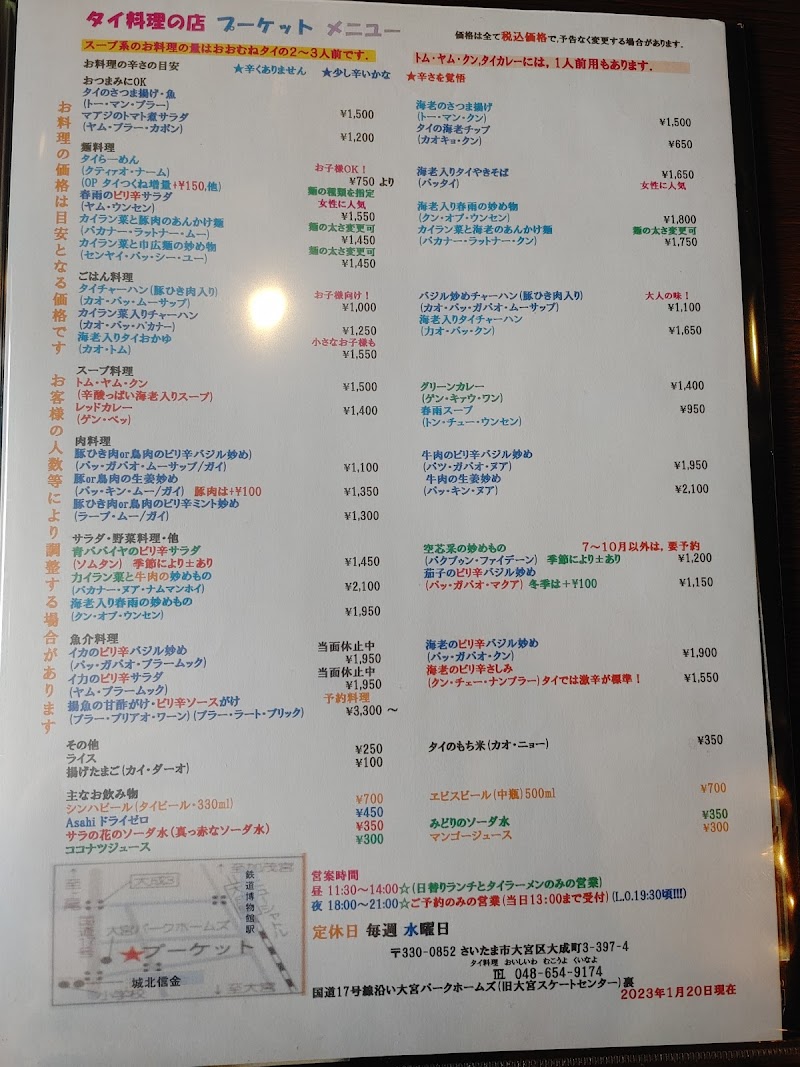 タイ料理の店 プーケット メニュー
価格は全て税込価格で,予告なく変更する場合があります.
スープ系のお料理の量はおおむねタイの2～3人前です.
トム・ヤム・クン,タイカレーには,1人前用もあります.
お料理の辛さの目安 ★辛くありません ★少し辛いかな ★辛さを覚悟
お料理の価格は目安となる価格です お客様の人数等により調整する場合があります
おつまみにOK
タイのさつま揚げ・魚
(トー・マン・プラー) ¥1,500
マアジのトマト煮サラダ
(ヤム・プラー・カポン) ¥1,200
海老のさつま揚げ
(トー・マン・クン) ¥1,500
タイの海老チップ
(カオキョ・クン) ¥650
麺料理
タイらーめん お子様OK！
(クティァオ・ナーム) ¥750 より
(OP タイつくね増量+¥150,他) 麺の種類を指定
春雨のピリ辛サラダ 女性に人気
(ヤム・ウンセン) ¥1,550
カイラン菜と豚肉のあんかけ麺 麺の太さ変更可
(バカナー・ラットナー・ムー) ¥1,450
カイラン菜と巾広麺の炒め物 麺の太さ変更可
(センヤイ・パッ・シー・ユー) ¥1,450
海老入りタイやきそば ¥1,650
(パッタイ) 女性に人気
海老入り春雨の炒め物
(クン・オブ・ウンセン) ¥1,800
カイラン菜と海老のあんかけ麺 麺の太さ変更可
(バカナー・ラットナー・クン) ¥1,750
ごはん料理
タイチャーハン(豚ひき肉入り) お子様向け！
(カオ・パッ・ムーサップ) ¥1,000
カイラン菜入りチャーハン
(カオ・パッ・パカナー) ¥1,250
海老入りタイおかゆ 小さなお子様も
(カオ・トム) ¥1,550
バジル炒めチャーハン(豚ひき肉入り) 大人の味！
(カオ・パッ・ガパオ・ムーサップ) ¥1,100
海老入りタイチャーハン
(カオ・パッ・クン) ¥1,650
スープ料理
トム・ヤム・クン ¥1,500
(辛酸っぱい海老入りスープ)
レッドカレー ¥1,400
(ゲン・ペッ)
グリーンカレー ¥1,400
(ゲン・キァウ・ワン)
春雨スープ ¥950
(トン・チュー・ウンセン)
肉料理
豚ひき肉or鳥肉のピリ辛バジル炒め)
(パッ・ガパオ・ムーサップ/ガイ) ¥1,100
豚or鳥肉の生姜炒め
(パッ・キン・ムー/ガイ) 豚肉は+¥100 ¥1,350
豚ひき肉or鳥肉のピリ辛ミント炒め
(ラープ・ムー/ガイ) ¥1,300
牛肉のピリ辛バジル炒め
(パッ・ガパオ・ヌア) ¥1,950
牛肉の生姜炒め
(パッ・キン・ヌア) ¥2,100
サラダ・野菜料理・他
青パパイヤのピリ辛サラダ
(ソムタン) 季節により±あり ¥1,450
カイラン菜と牛肉の炒めもの
(バカナー・ヌア・ナムマンホイ) ¥2,100
海老入り春雨の炒めもの
(クン・オブ・ウンセン) ¥1,950
空芯菜の炒めもの 7～10月以外は,要予約
(パクブゥン・ファイデーン) 季節により±あり ¥1,200
茄子のピリ辛バジル炒め
(パッ・ガパオ・マクア) 冬季は＋¥100 ¥1,150
魚介料理
イカのピリ辛バジル炒め 当面休止中
(パッ・ガパオ・プラームック) ¥1,950
イカのピリ辛サラダ 当面休止中
(ヤム・プラームック) ¥1,950
揚魚の甘酢がけ・ピリ辛ソースがけ 予約料理
(プラー・プリアオ・ワーン)(プラー・ラート・プリック) ¥3,300 ～
海老のピリ辛バジル炒め
(パッ・ガパオ・クン) ¥1,900
海老のピリ辛さしみ
(クン・チェー・ナンプラー)タイでは激辛が標準！ ¥1,550
その他
ライス ¥250
揚げたまご(カイ・ダーオ) ¥100
タイのもち米(カオ・ニョー) ¥350
主なお飲み物
シンハビール(タイビール・330ml) ¥700
Asahi ドライゼロ ¥450
サラの花のソーダ水(真っ赤なソーダ水) ¥350
ココナツジュース ¥300
ヱビスビール(中瓶)500ml ¥700
みどりのソーダ水 ¥350
マンゴージュース ¥300
至加茂宮
大成3
鉄道博物館駅
大宮パークホームズ
★プーケット
城北信金
小学校
至大宮
営案時間
昼 11:30～14:00☆(日替りランチとタイラーメンのみの営業)
夜 18:00～21:00☆ご予約のみの営業(当日13:00まで受付)(L.O.19:30頃!!!)
定休日 毎週 水曜日
〒330-0852 さいたま市大宮区大成町3-397-4
タイ料理 おいしいわ むこうよ くいなよ
℡ 048-654-9174
国道17号線沿い大宮パークホームズ(旧大宮スケートセンター)裏
2023年1月20日現在